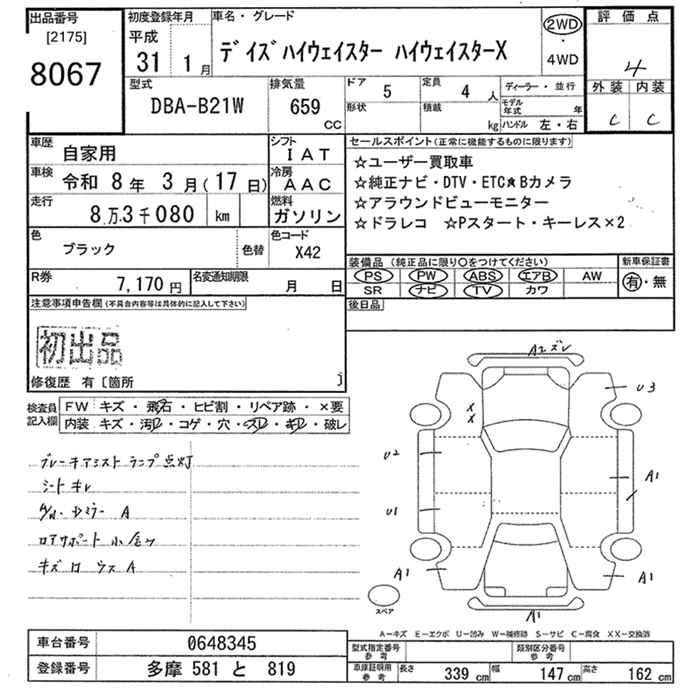 出品番号
[2175]
8067
初度登録年月
平成
31年 1月
車名・グレード
デイズハイウェイスター ハイウェイスターX
2WD
・
4WD
評価点
4
外装 内装
C C
型式
DBA-B21W
排気量
659
CC
ドア
5
定員
4人
形状
積載
kg
ディーラー・並行
モデル年式
年
ハンドル 左・右
車歴
自家用
シフト
IAT
車検
令和 8年 3月(17日)
冷房
AAC
走行
8万3千080 km
燃料
ガソリン
色
ブラック
色替
色コード
X42
R券
7,170円
名変通知期限
月 日
セールスポイント(正常に機能するものに限ります)
☆ユーザー買取車
☆純正ナビ・DTV・ETC★Bカメラ
☆アラウンドビューモニター
☆ドラレコ ☆Pスタート・キーレス×2
装備品(純正品に限り○をつけてください)
PS PW ABS エアB AW
SR ナビ TV カワ
新車保証書
有・無
後日品
注意事項申告欄(不具合内容等は具体的に記入して下さい)
初出品
修復歴 有〔箇所
検査員記入欄
FW キズ・飛石・ヒビ割・リペア跡・×要
内装 キズ・汚レ・コゲ・穴・スレ・キレ・破レ
ブレーキアシスト ランプ点灯
シートキレ
ミラー A
ロアサポート小
キズ A
A2ズレ
U3
X
X
U2
A1
U1
A1
A1
A1
スペア
A－キズ E－エクボ U－凹み W－補修跡 S－サビ C－腐食 XX－交換済
車台番号
0648345
登録番号
多摩 581 と 819
型式指定番号
参考
類別区分番号
参考
車庫証明用
参考
長さ 339 cm
幅 147 cm
高さ 162 cm